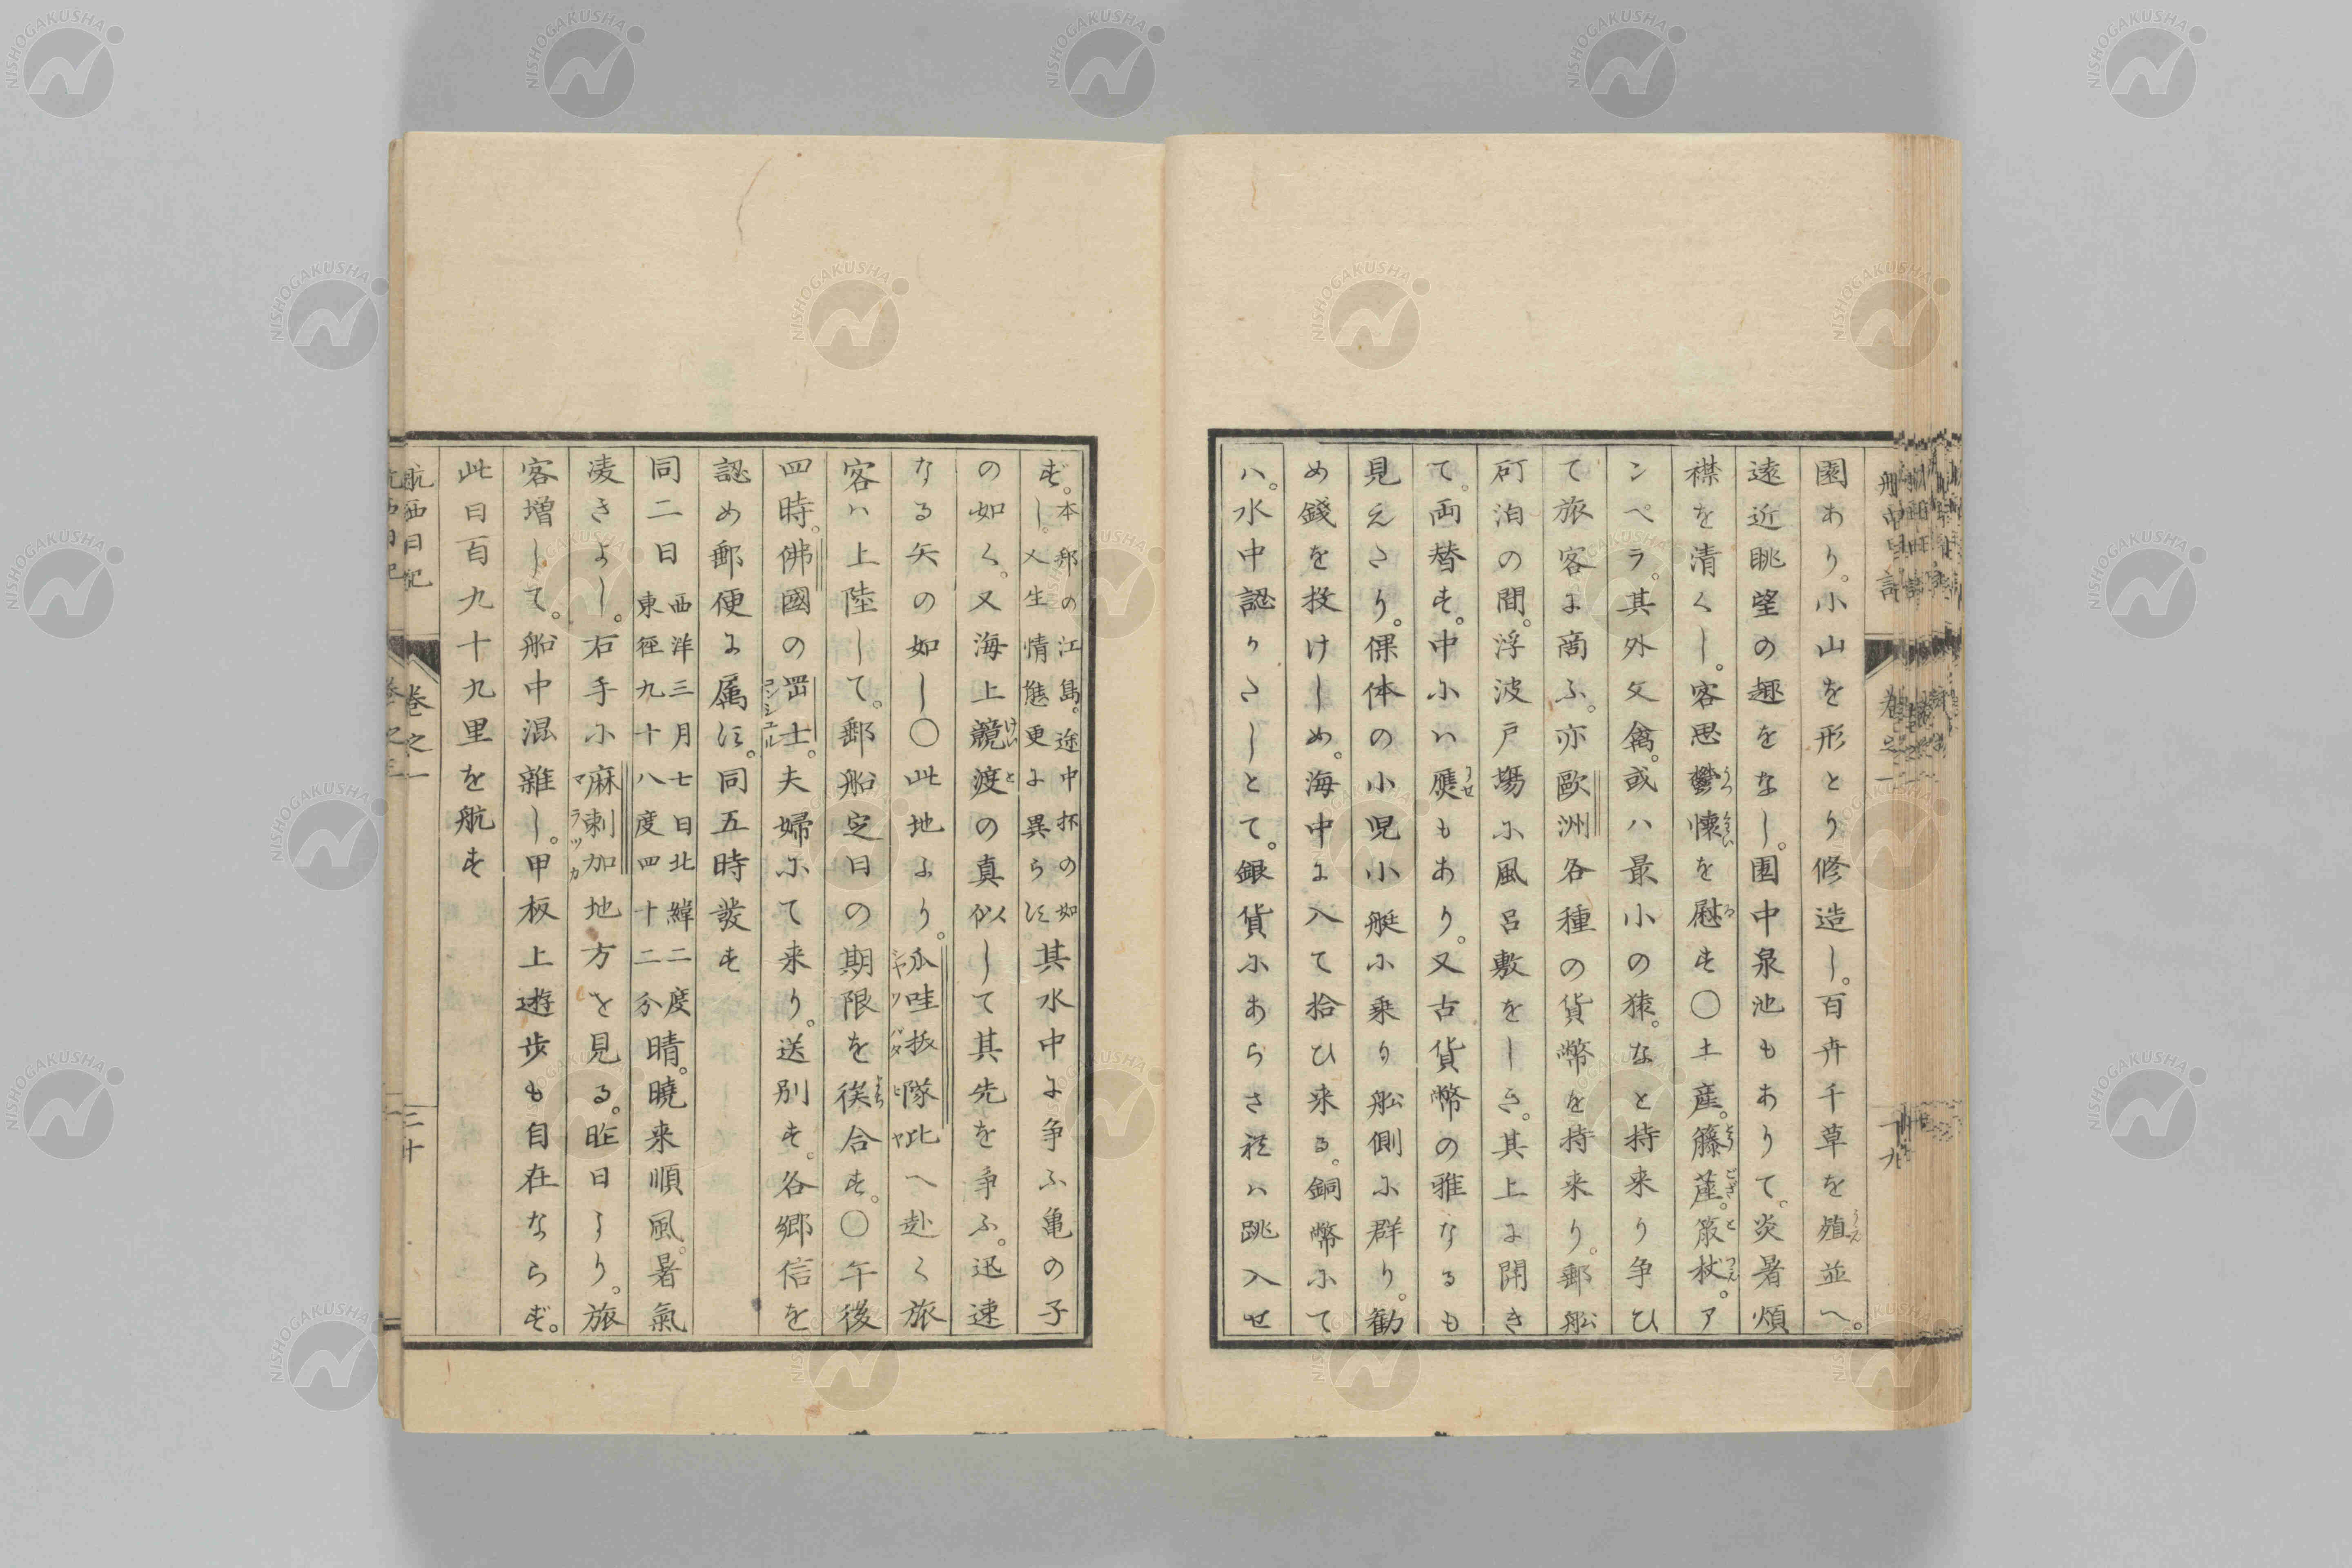 園あり。小山を形とり修造し。百卉千草を殖並へ。
遠近眺望の趣をなし。園中泉池もありて。炎暑煩
襟を清くし。客思鬱懐を慰す〇土産。籐莚。籐杖。ア
ンペラ。其外文禽。或ハ最小の猿。なと持来り争ひ
て旅客に商ふ。亦歐洲各種の貨幣を持来り。郵舩
碇泊の間。浮波戸場に風呂敷をしき。其上に開き
て。両替す。中にハ贋もあり。又古貨幣の雅なるも
見えたり。倮体の小児小艇に乗り舩側に群り。勧
め錢を投けしめ。海中に入て拾ひ来る。銅幣にて
ハ。水中認りたしとて。銀貨にあらされハ跳入せ
ず。本邦の江島。途中抔の如し。人生情態更に異らす其水中に争ふ亀の子
の如く。又海上競渡の真似して其先を争ふ。迅速
なる矢の如し〇此地より。瓜哇抜隊比へ赴く旅
客ハ上陸して。郵船定日の期限を俟合す。〇午後
四時。佛國の岡士。夫婦にて来り。送別す。各郷信を
認め郵便に属す。同五時發す
同二日西洋三月七日北緯二度東徑九十八度四十二分晴。曉来順風。暑氣
凌きよし。右手に麻剌加地方を見る。昨日より。旅
客増して。船中混雜し。甲板上遊歩も自在ならず。
此日百九十九里を航す
航西日記
巻之一
二十
NISHOGAKUSHA